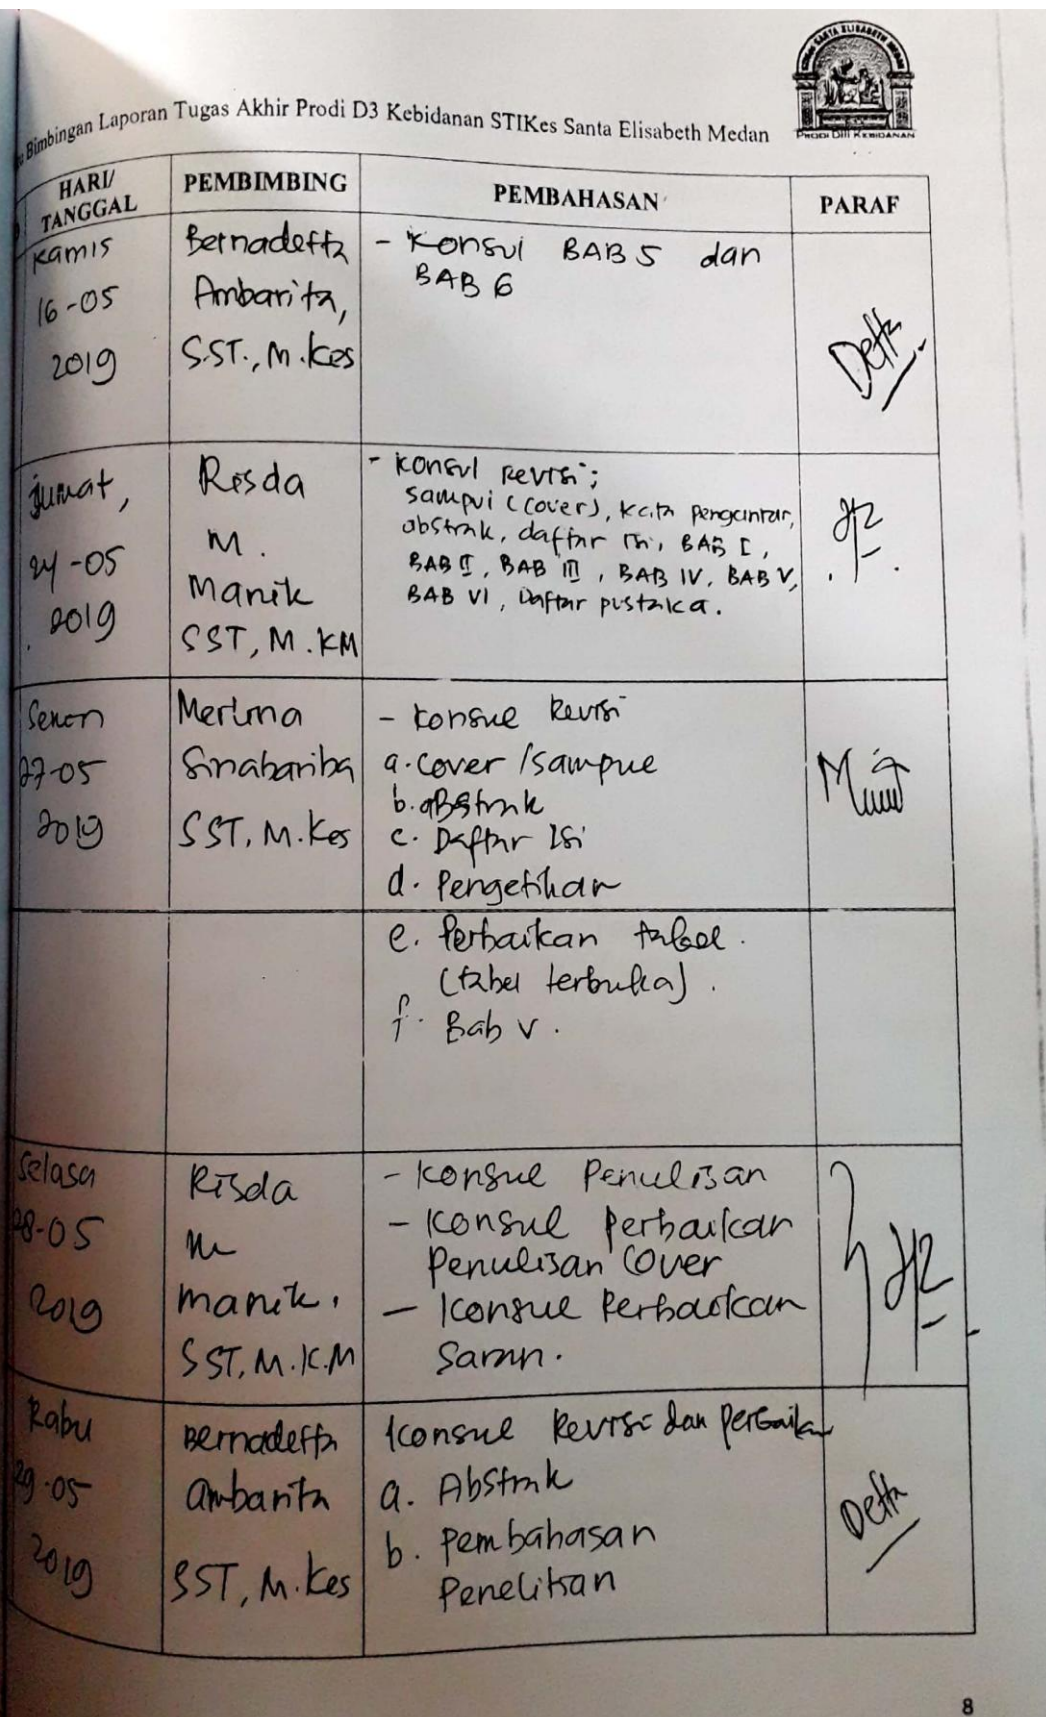 Bimbingan Laporan Tugas Akhir Prodi D3 Kebidanan STIKes Santa Elisabeth Medan
SANTA ELISABETH MEDAN
PRODI DIII KEBIDANAN
HARI/
TANGGAL
PEMBIMBING
PEMBAHASAN
PARAF
Kamis
16-05
2019
Bernadetta
Ambarita,
S.ST., M.Kes
- Konsul BAB 5 dan
BAB 6
Detta
Jumat,
24-05
2019
Risda
M.
Manik
SST, M.KM
- Konsul Revisi;
Sampul (cover), Kata pengantar,
abstrak, daftar isi, BAB I,
BAB II, BAB III, BAB IV, BAB V,
BAB VI, Daftar pustaka.
Senin
27-05
2019
Merlina
Sinabariba
SST, M.Kes
- Konsul Revisi
a. Cover / Sampul
b. abstrak
c. Daftar Isi
d. Pengetikan
e. Perbaikan tabel.
(tabel terbuka).
f. Bab V.
Selasa
28-05
2019
Risda
M
Manik.
SST, M.K.M
- Konsul Penulisan
- Konsul Perbaikan
Penulisan Cover
- Konsul Perbaikan
Saran.
Rabu
29-05
2019
Bernadetta
Ambarita
SST, M.Kes
Konsul Revisi dan Perbaikan
a. Abstrak
b. Pembahasan
Penelitian
Detta
8